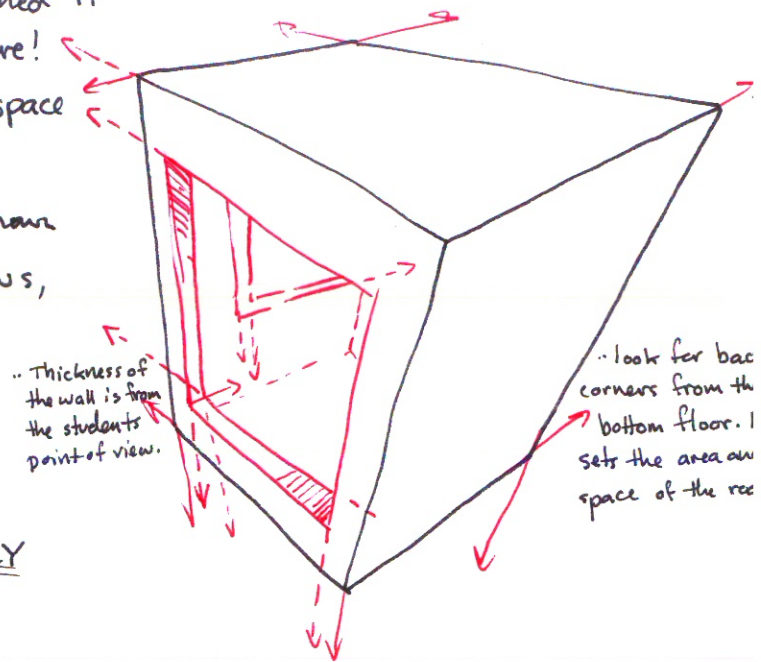 re!
space
us,
.. Thickness of
the wall is from
the students
point of view.
.. look for bac
corners from th
bottom floor. I
sets the area an
space of the roo
Y